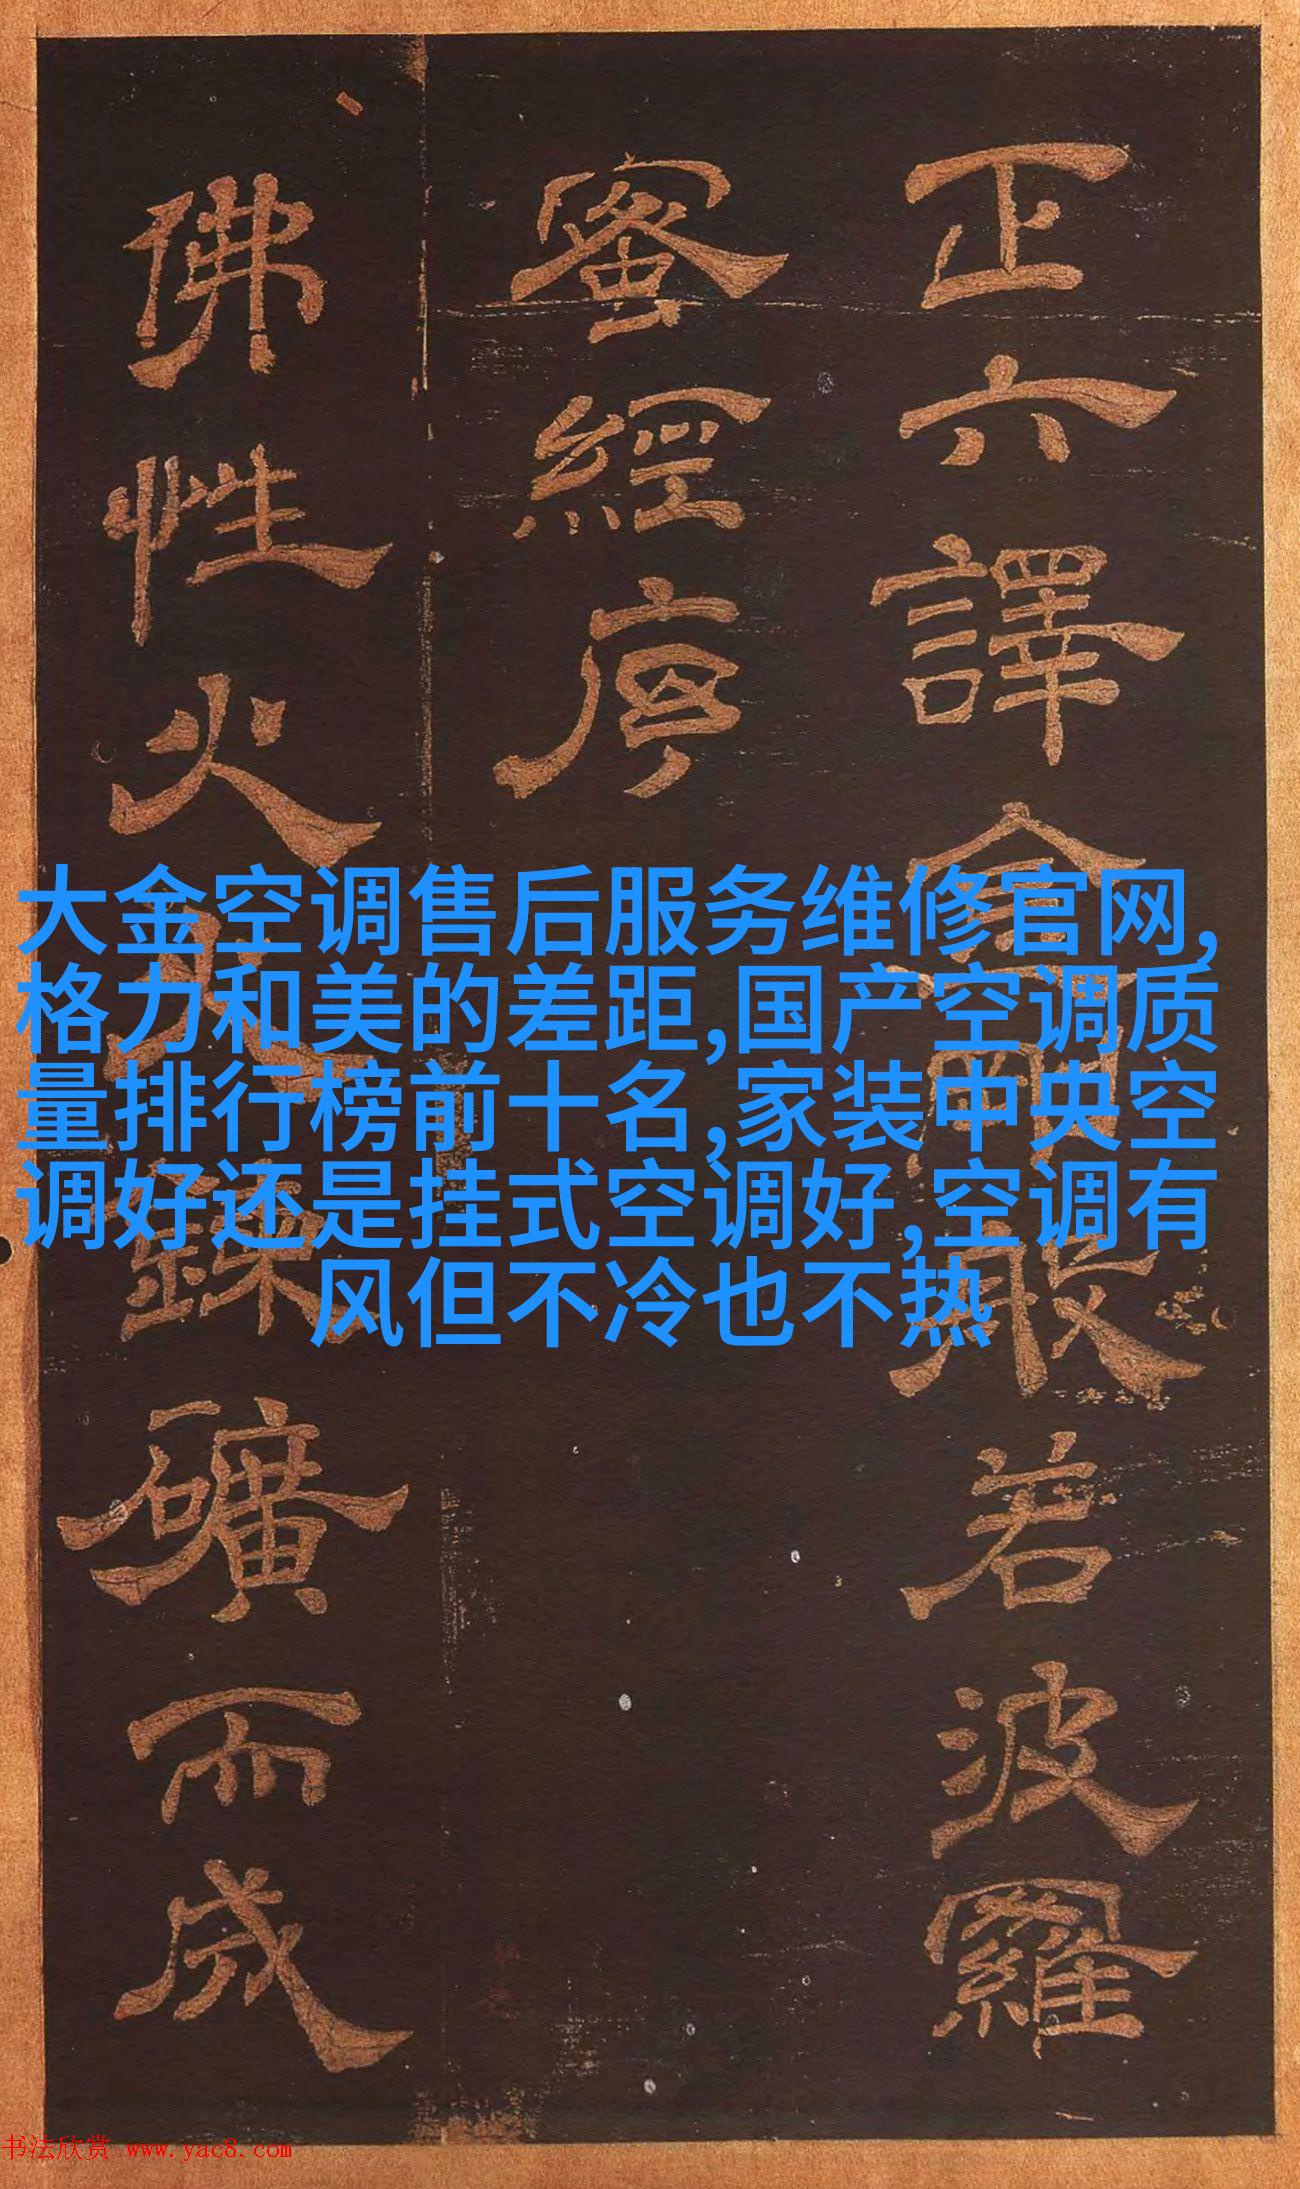 正六譯金剛般若波羅
蜜經序
佛性火
鍊礦而成
大金空调售后服务维修官网,
格力和美的差距,国产空调质
量排行榜前十名,家装中央空
调好还是挂式空调好,空调有
风但不冷也不热
书法欣赏 www.yac8.com